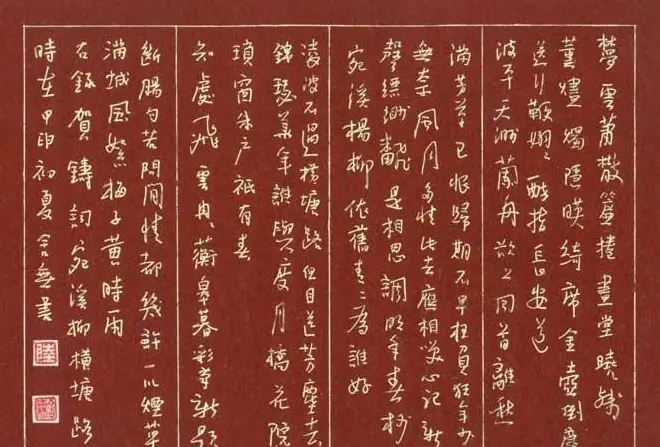 夢雲蕭散簾捲畫堂曉殘
薰燼燭隱映綺席金壺倒塵
送行鞭嫋嫋醉指長安道
波平天渺蘭舟欲上回首離愁
滿芳草已恨歸期不早枉負狂年少
無奈風月多情此去應相笑心記新
聲縹緲翻是相思調明年春杪
宛溪楊柳依舊青青為誰好
凌波不過橫塘路但目送芳塵去
錦瑟華年誰與度月橋花院
瑣窗朱戶祇有春
知處飛雲冉冉蘅皋暮彩筆新題
斷腸句若問閒情都幾許一川煙草
滿城風絮梅子黃時雨
右錄賀鑄詞宛溪柳橫塘路
時在甲申初夏書